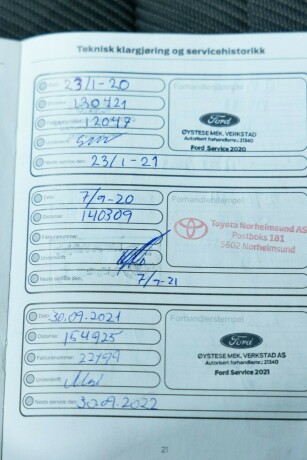 Teknisk klargjøring og servicehistorikk
Dato: 23/1-20
130721
12047
Neste service den: 23/1-21
Forhandlerstempel
Ford
ØYSTESE MEK. VERKSTAD
Autorisert forhandlernr.: 21340
Ford Service 2020
Dato: 7/9-20
Distanse: 140309
Fakturanummer:
Underskrift:
Neste service den: 7/9-21
Forhandlerstempel
Toyota Norheimsund AS
Postboks 181
5602 Norheimsund
Dato: 30.09.2021
Distanse: 154925
Fakturanummer: 22799
Underskrift:
Neste service den: 30.09.2022
Forhandlerstempel
Ford
ØYSTESE MEK. VERKSTAD AS
Autorisert forhandlernr.: 21340
Ford Service 2021
21